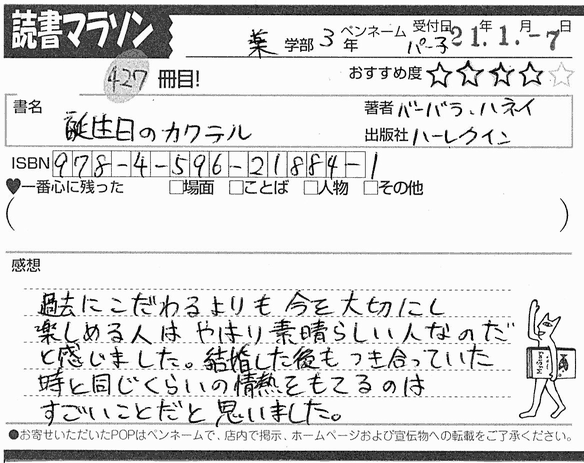 読書マラソン
薬 学部 3年 ペンネーム パー子 受付日 21年 1月-7日
427冊目!
おすすめ度 ☆☆☆☆☆
書名 誕生日のカクテル
著者 バーバラ・ハネイ
出版社 ハーレクイン
ISBN 978-4-596-21884-1
♥一番心に残った □場面 □ことば □人物 □その他
( )
感想
過去にこだわるよりも 今を大切にし
楽しめる人は やはり素晴らしい人なのだ
と感じました。結婚した後も つき合っていた
時と同じくらいの情熱をもてるのは
すごいことだと思いました。
●お寄せいただいたPOPはペンネームで、店内で掲示、ホームページおよび宣伝物への転載をご了承ください。